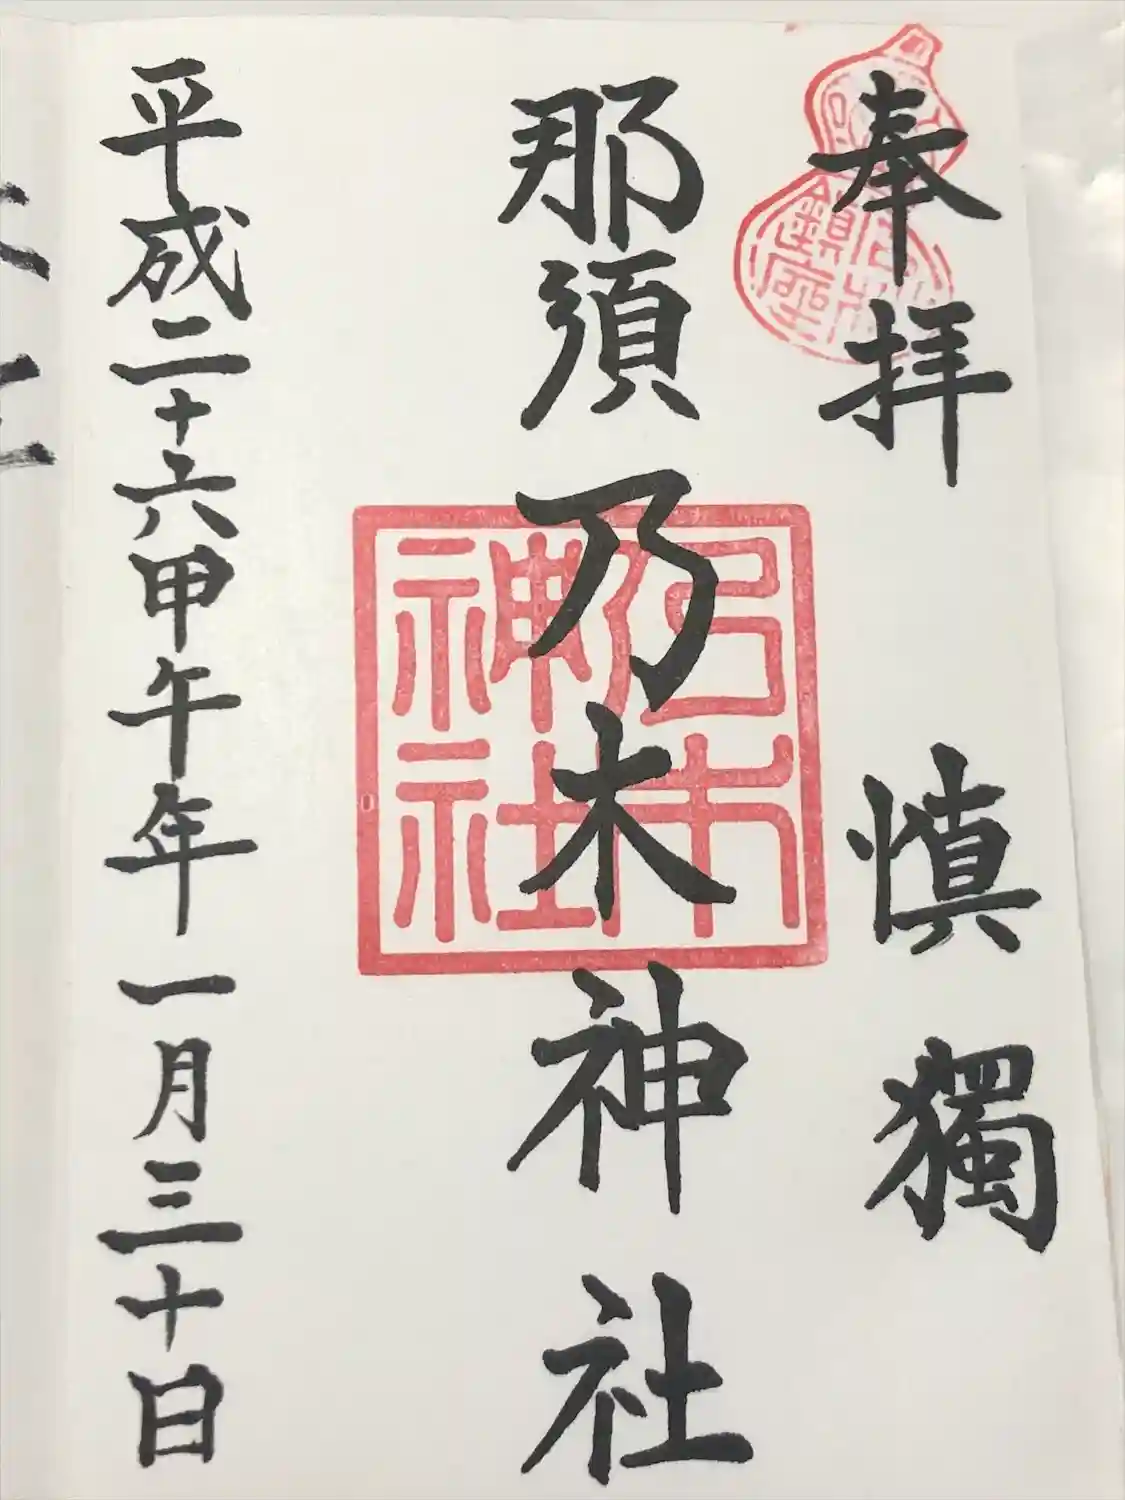 奉拝 慎獨
那須乃木神社
乃木神社
平成二十六甲午年一月三十日